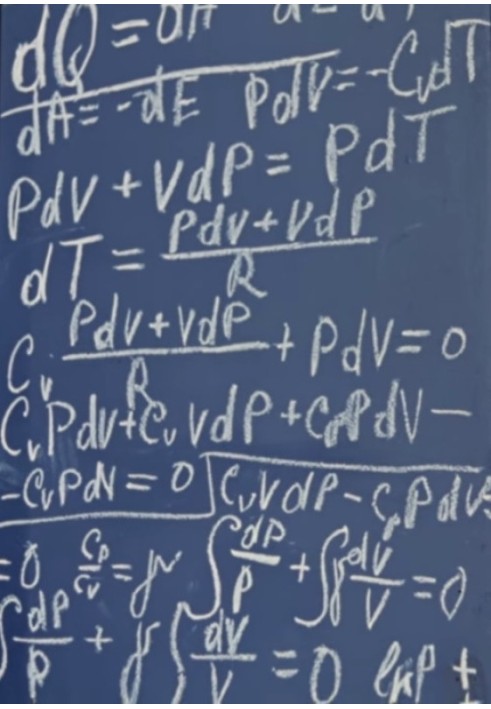 dQ = dA
dA = -dE PdV = -CvdT
PdV + VdP = PdT
dT = PdV + VdP / R
Cv · PdV + VdP / R + PdV = 0
CvPdV + CvVdP + CpPdV -
- CvPdV = 0 CvVdP - CpPdV =
= 0 Cp/Cv = γ ∫ dP/P + ∫γ dV/V = 0
∫ dP/P + γ ∫ dV/V = 0 lnP +